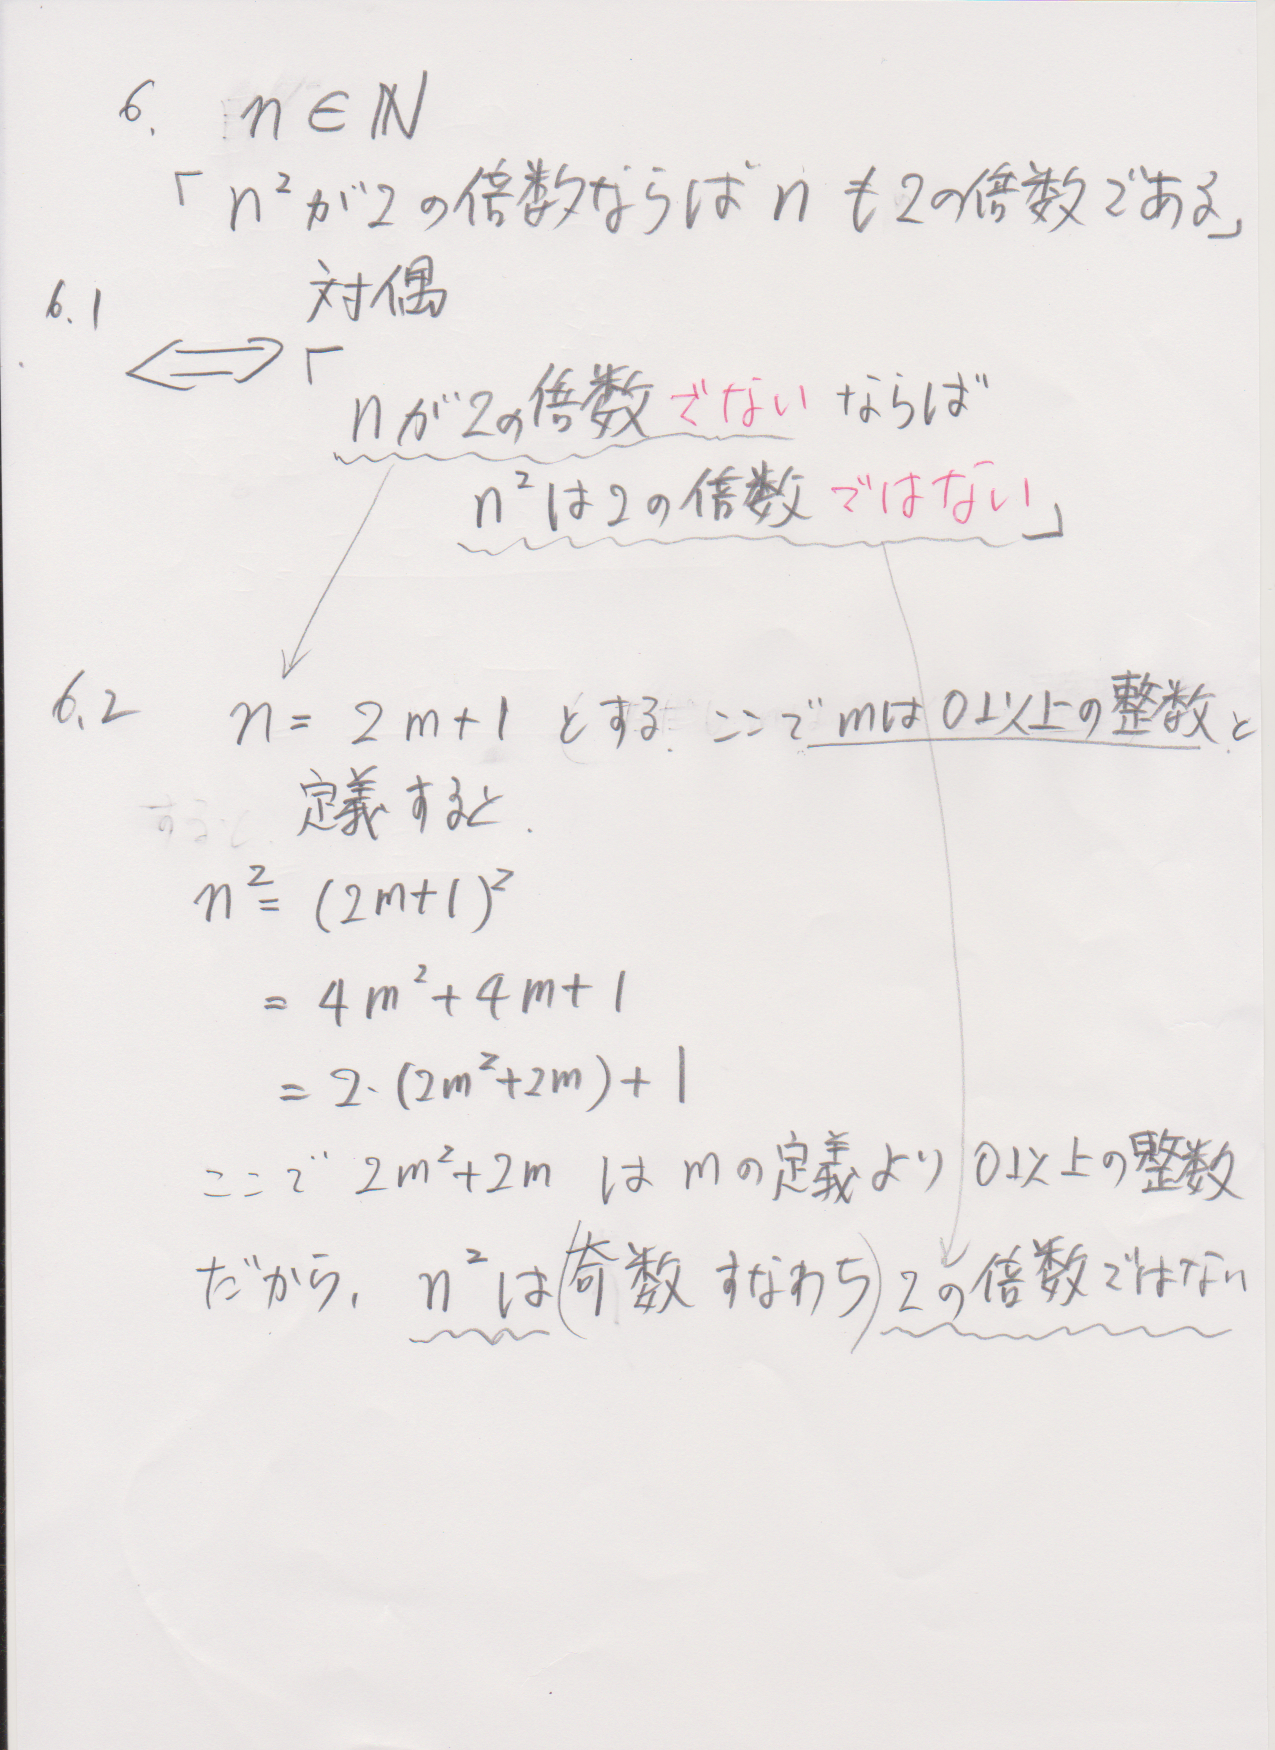 6. n ∈ ℕ
「n²が2の倍数ならばnも2の倍数である」
6.1 対偶
⟺「
nが2の倍数でないならば
n²は2の倍数ではない」
6.2 n = 2m+1 とする. ここでmは0以上の整数と
定義すると.
n² = (2m+1)²
= 4m²+4m+1
= 2·(2m²+2m)+1
ここで 2m²+2m は mの定義より 0以上の整数
だから, n²は(奇数 すなわち)2の倍数ではない